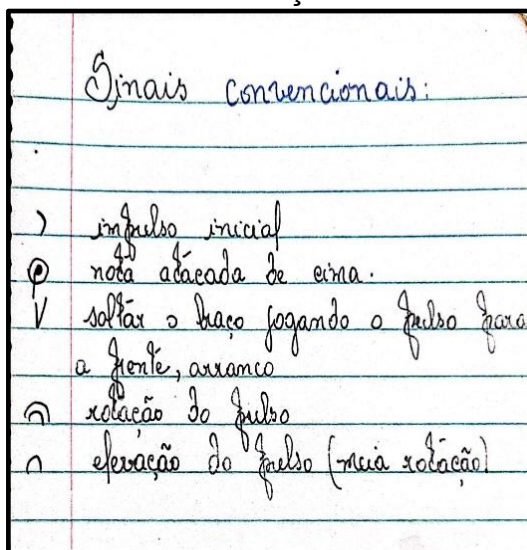 Sinais convencionais:
) impulso inicial
nota atacada de cima.
V soltar o braço jogando o pulso para
a frente, arranco
rotação do pulso
∩ elevação do pulso (meia rotação)